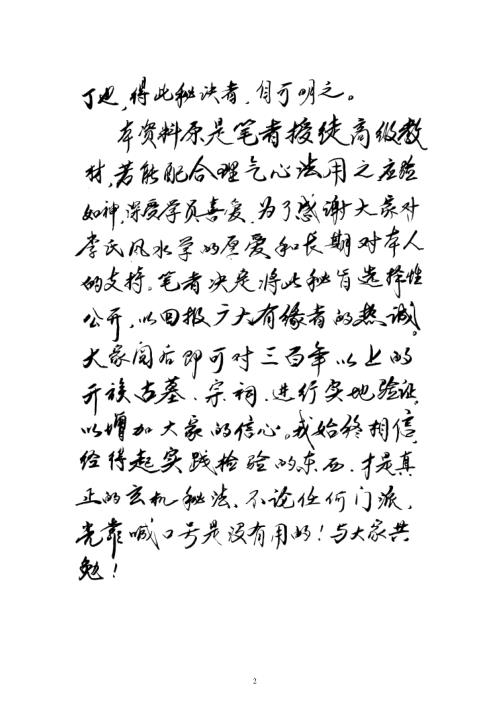 了也,得此秘诀者,自可明之。
本资料原是笔者授徒高级教
材,若能配合理气心法用之应验
如神,深受学员喜爱,为了感谢大家对
李氏风水学的厚爱和长期对本人
的支持。笔者决定将此秘旨选择性
公开,以回报广大有缘者的热诚。
大家阅后即可对三百年以上的
开族古墓、宗祠,进行实地验证,
以增加大家的信心。我始终相信,
经得起实践检验的东西,才是真
正的玄机秘法,不论任何门派,
光靠喊口号是没有用的!与大家共
勉!
2